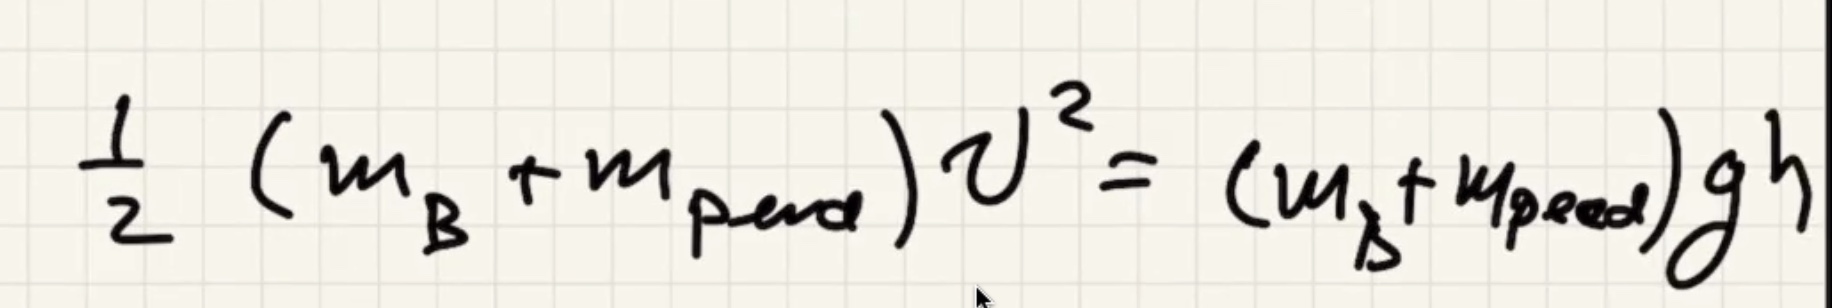 1/2 (m_B + m_pend) v² = (m_B + m_pend) g h